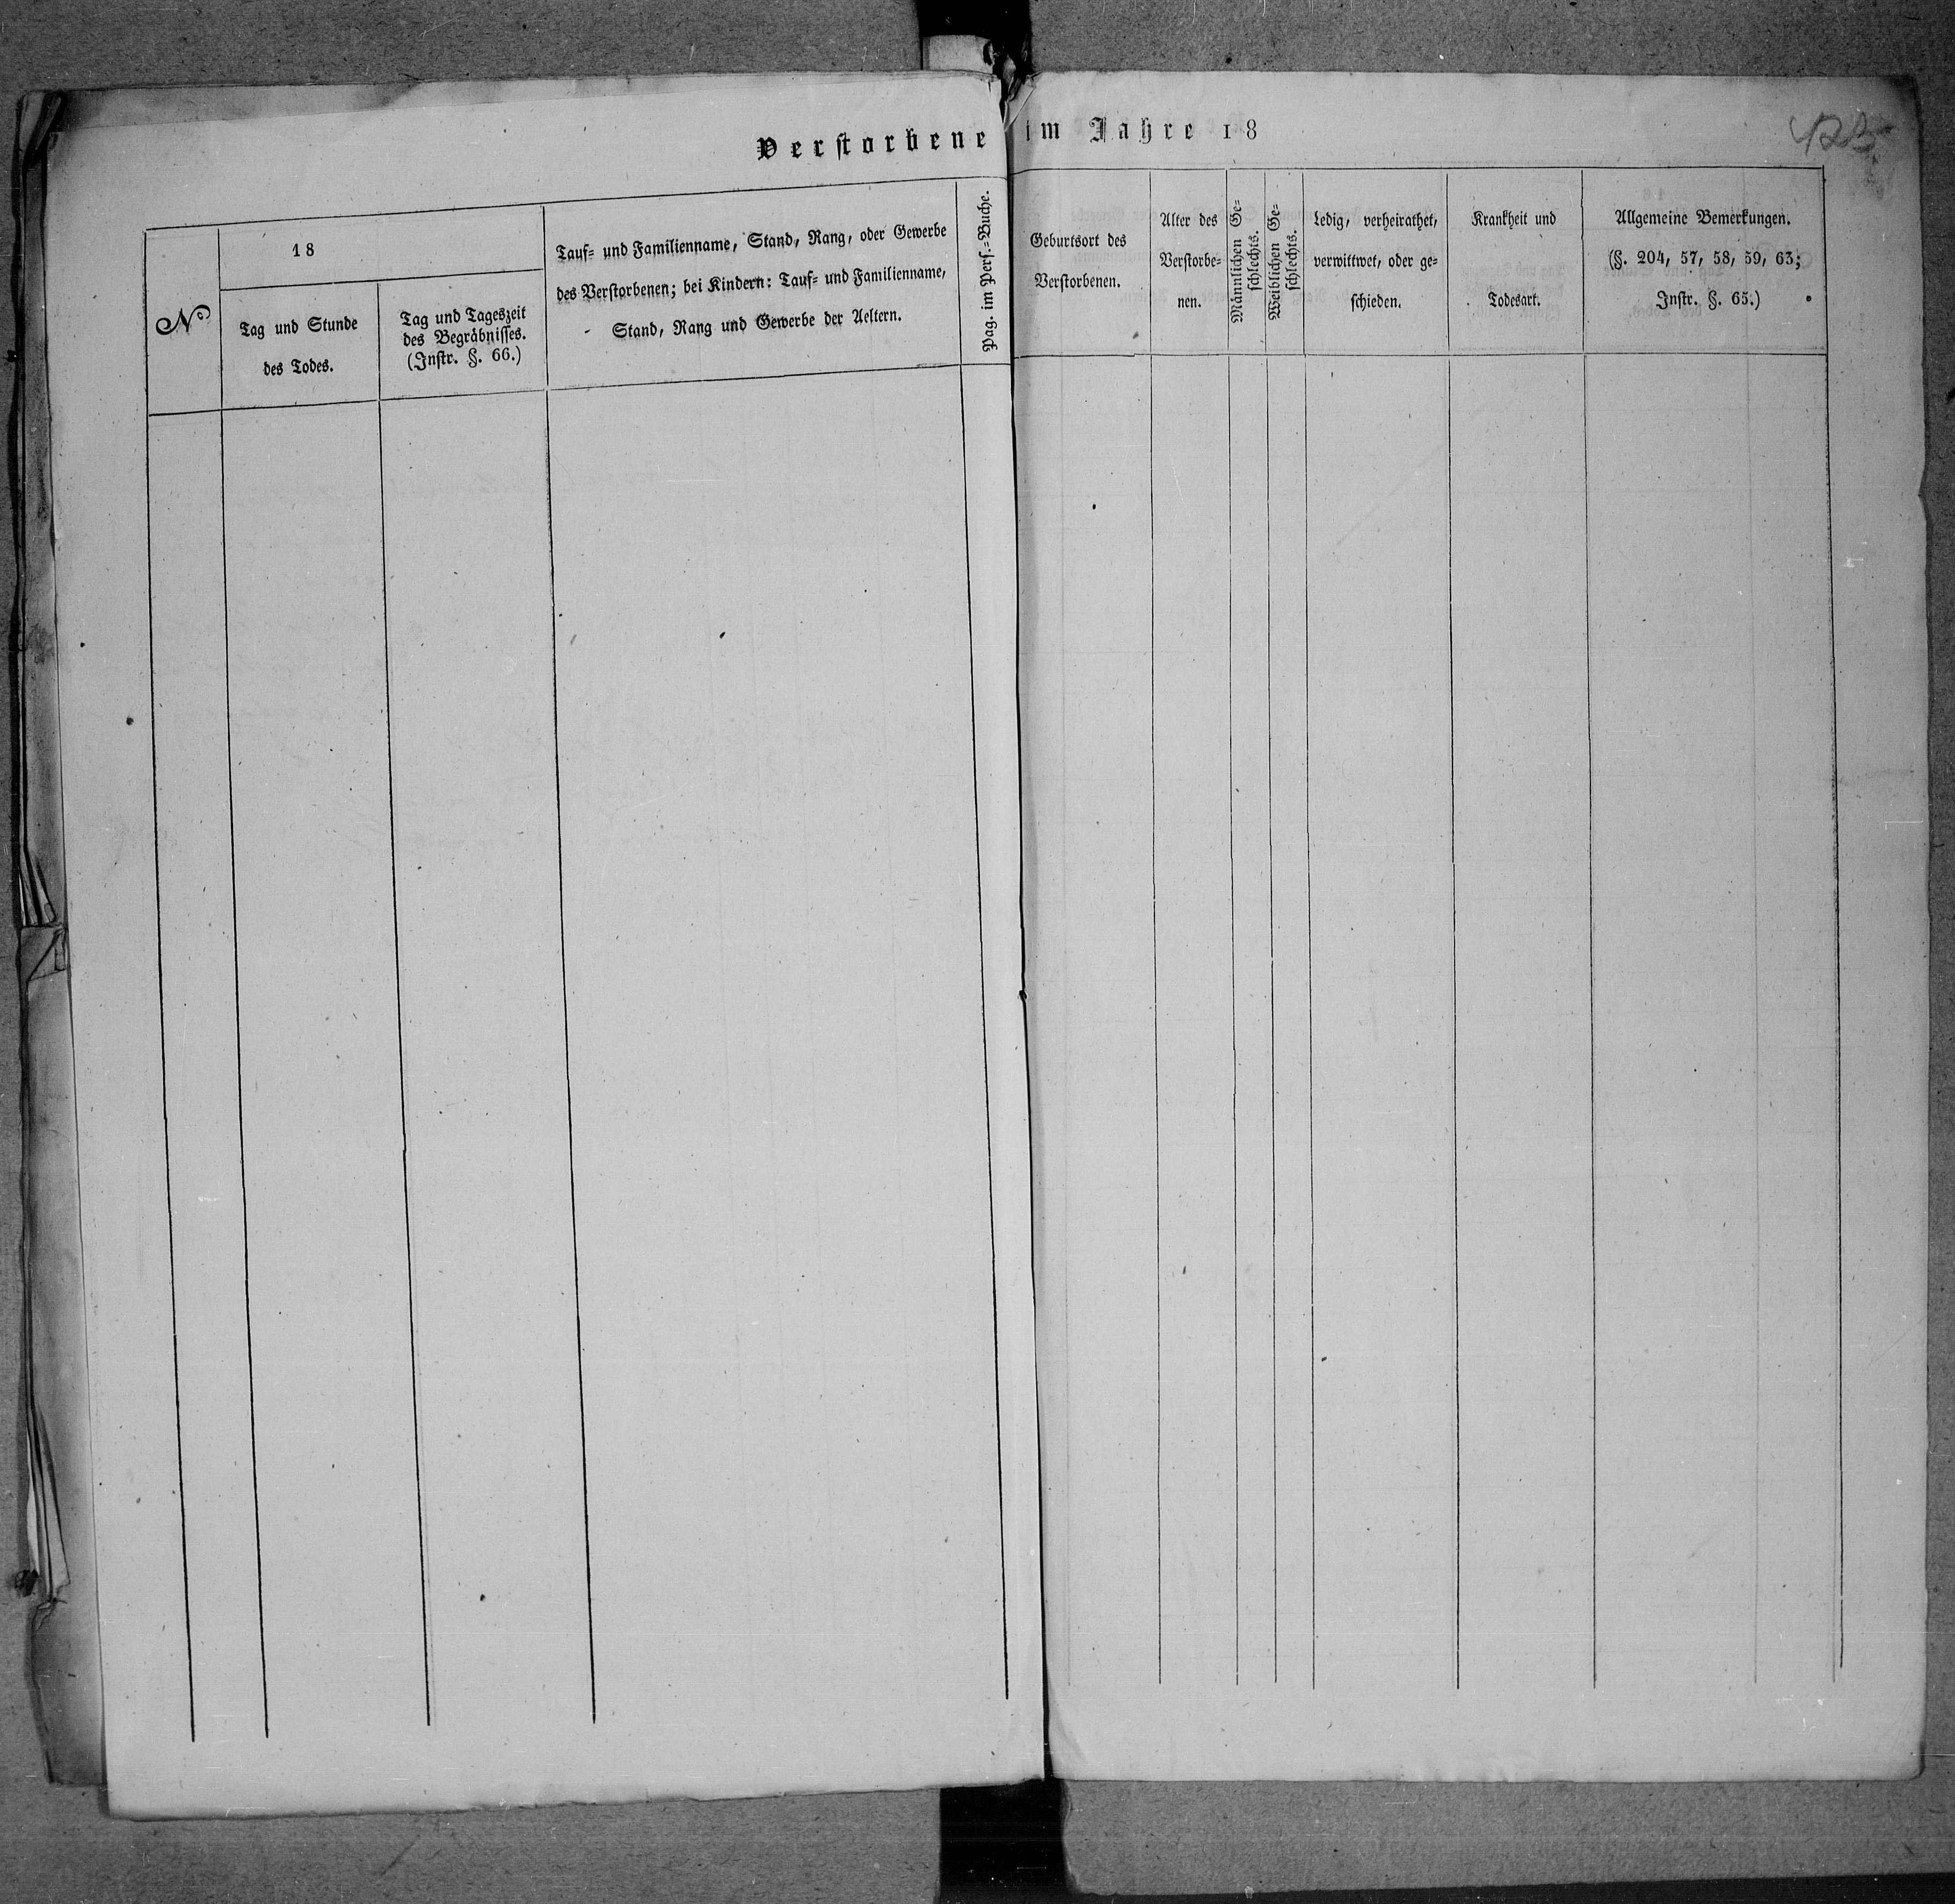 Verstorbene im Jahre 18
423.
No
18
Tag und Stunde
des Todes.
Tag und Tageszeit
des Begräbnisses.
(Instr. §. 66.)
Tauf- und Familienname, Stand, Rang, oder Gewerbe
des Verstorbenen; bei Kindern: Tauf- und Familienname,
Stand, Rang und Gewerbe der Aeltern.
Pag. im Pers.-Buche.
Geburtsort des
Verstorbenen.
Alter des
Verstorbe-
nen.
Männlichen Ge-
schlechts.
Weiblichen Ge-
schlechts.
Ledig, verheirathet,
verwittwet, oder ge-
schieden.
Krankheit und
Todesart.
Allgemeine Bemerkungen.
(§. 204, 57, 58, 59, 63;
Instr. §. 65.)